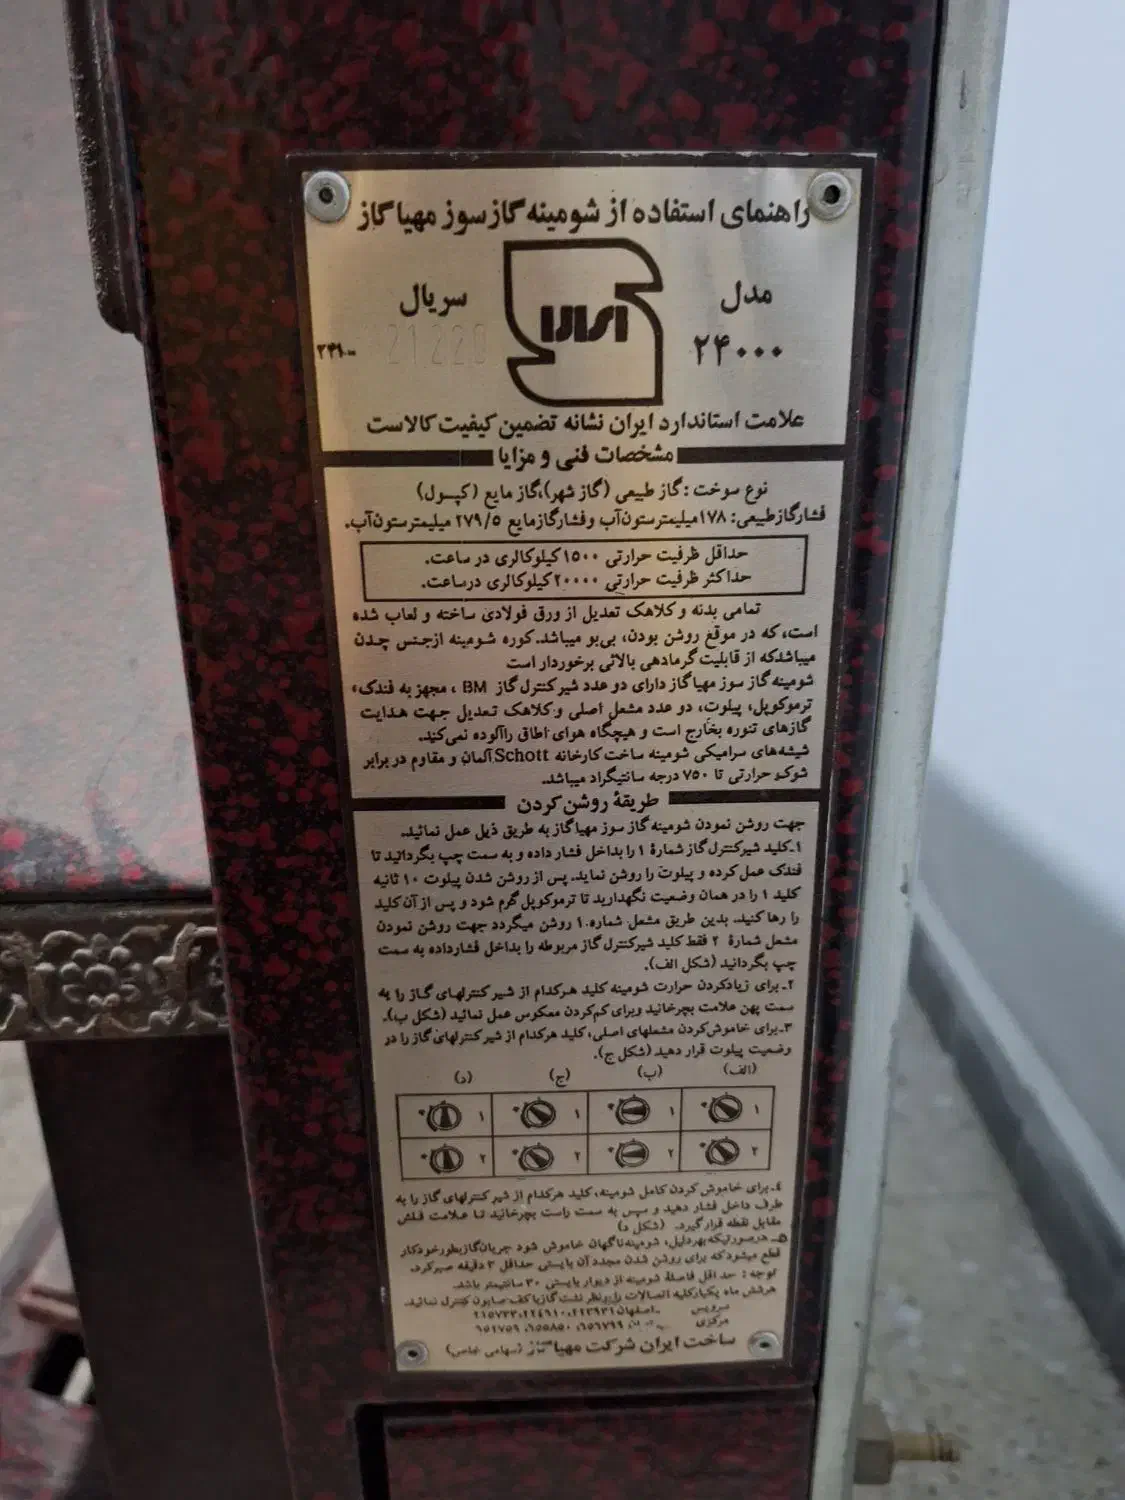 راهنمای استفاده از شومینه گازسوز مهیاگاز
مدل
سریال
۲۴۰۰۰
21220
علامت استاندارد ایران نشانه تضمین کیفیت کالاست
مشخصات فنی و مزایا
نوع سوخت : گاز طبیعی (گاز شهر)،گاز مایع (کپسول)
فشارگازطبیعی: ۱۷۸میلیمترستون‌آب وفشارگازمایع ۲۷۹/۵ میلیمترستون‌آب.
حداقل ظرفیت حرارتی ۱۵۰۰کیلوکالری در ساعت.
حداکثر ظرفیت حرارتی ۲۰۰۰۰کیلوکالری درساعت.
تمامی بدنه و کلاهک تعدیل از ورق فولادی ساخته و لعاب شده
است،که در موقع روشن بودن، بی‌بو میباشد.کوره شومینه ازجنس چدن
میباشدکه از قابلیت گرمادهی بالائی برخوردار است
شومینه گاز سوز مهیاگاز دارای دو عدد شیرکنترل گاز BM ، مجهز به فندک،
ترموکوپل، پیلوت، دو عدد مشعل اصلی و کلاهک تعدیل جهت هدایت
گازهای تنوره بخارج است و هیچگاه هوای اطاق راآلوده نمی‌کند.
شیشه‌های سرامیکی شومینه ساخت کارخانه Schott آلمان و مقاوم در برابر
شوک حرارتی تا ۷۵۰ درجه سانتیگراد میباشد.
طریقهٔ روشن کردن
جهت روشن نمودن شومینه گاز سوز مهیاگاز به طریق ذیل عمل نمائید.
۱ـ کلید شیرکنترل گاز شمارهٔ ۱ را بداخل فشار داده و به سمت چپ بگردانید تا
فندک عمل کرده و پیلوت را روشن نماید. پس از روشن شدن پیلوت ۱۰ ثانیه
کلید ۱ را در همان وضعیت نگهدارید تا ترموکوپل گرم شود و پس از آن کلید
را رها کنید. بدین طریق مشعل شماره ۱ روشن میگردد جهت روشن نمودن
مشعل شمارهٔ ۲ فقط کلید شیرکنترل گاز مربوطه را بداخل فشارداده به سمت
چپ بگردانید (شکل الف).
۲ـ برای زیادکردن حرارت شومینه کلید هرکدام از شیر کنترلهای گاز را به
سمت پهن علامت بچرخانید وبرای کم‌کردن معکوس عمل نمائید (شکل ب).
۳ـ برای خاموش‌کردن مشعلهای اصلی، کلید هرکدام از شیرکنترلهای گاز را در
وضعیت پیلوت قرار دهید (شکل ج).
(الف) (ب) (ج) (د)
۱ ۱ ۱ ۱
۲ ۲ ۲ ۲
٤ـ برای خاموش کردن کامل شومینه، کلید هرکدام از شیر کنترلهای گاز را به
طرف داخل فشار دهید و سپس به سمت راست بچرخانید تا علامت فلش
مقابل نقطه قرارگیرد. (شکل د)
۵ـ درصورتیکه بهردلیل، شومینه ناگهان خاموش شود جریان گازبطورخودکار
قطع میشودکه برای روشن شدن مجدد آن بایستی حداقل ۳ دقیقه صبرکرد.
توجه : حد اقل فاصلهٔ شومینه از دیوار بایستی ۳۰ سانتیمتر باشد.
هرشش ماه یکبارکلیه اتصالات را ازنظر نشت گاز باکف صابون کنترل نمائید.
سرویس ـ اصفهان ۲۲۳۹۳۱، ۲۲٤٦۱۰، ۲۱۵۷۳۳
مرکزی ٦۵٦۷۹۹، ٦۵۵۸۵۰، ٦۵۲۷۵۹
ساخت ایران شرکت مهیا گاز (سهامی خاص)